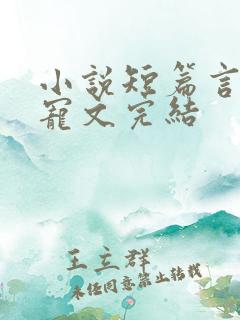 小說短篇言
寵文完結
王立群
未经同意禁止转载